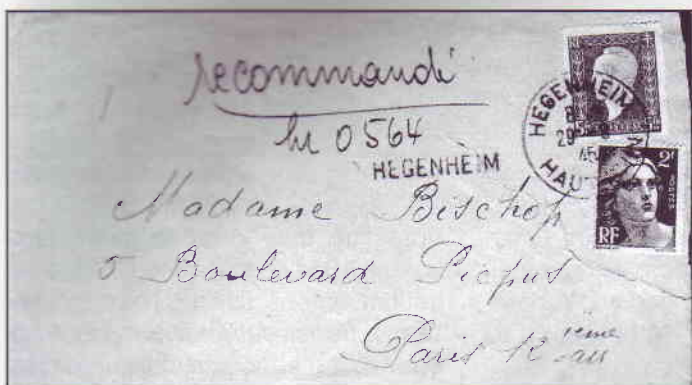 recommandé
№ 0564
HEGENHEIM
HEGENHEIM
29
45
HAUT
2F
POSTES
RF
Madame Bischop
5 Boulevard Picpus
Paris 12 ième arr